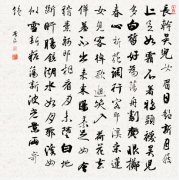 長干吴兒女眉目艷新月屐
上足如霜不著鴉頭襪吴兒
多白皙好為蕩舟劇賣眼擲
春心折花調行客耶溪采蓮
女見客棹歌回笑入荷花去
佯羞不出來東陽素足女會
稽素舸郎相看月未墮白地
斷肝腸鏡湖水如月耶溪女
似雪新粧蕩新波光景兩奇
絕